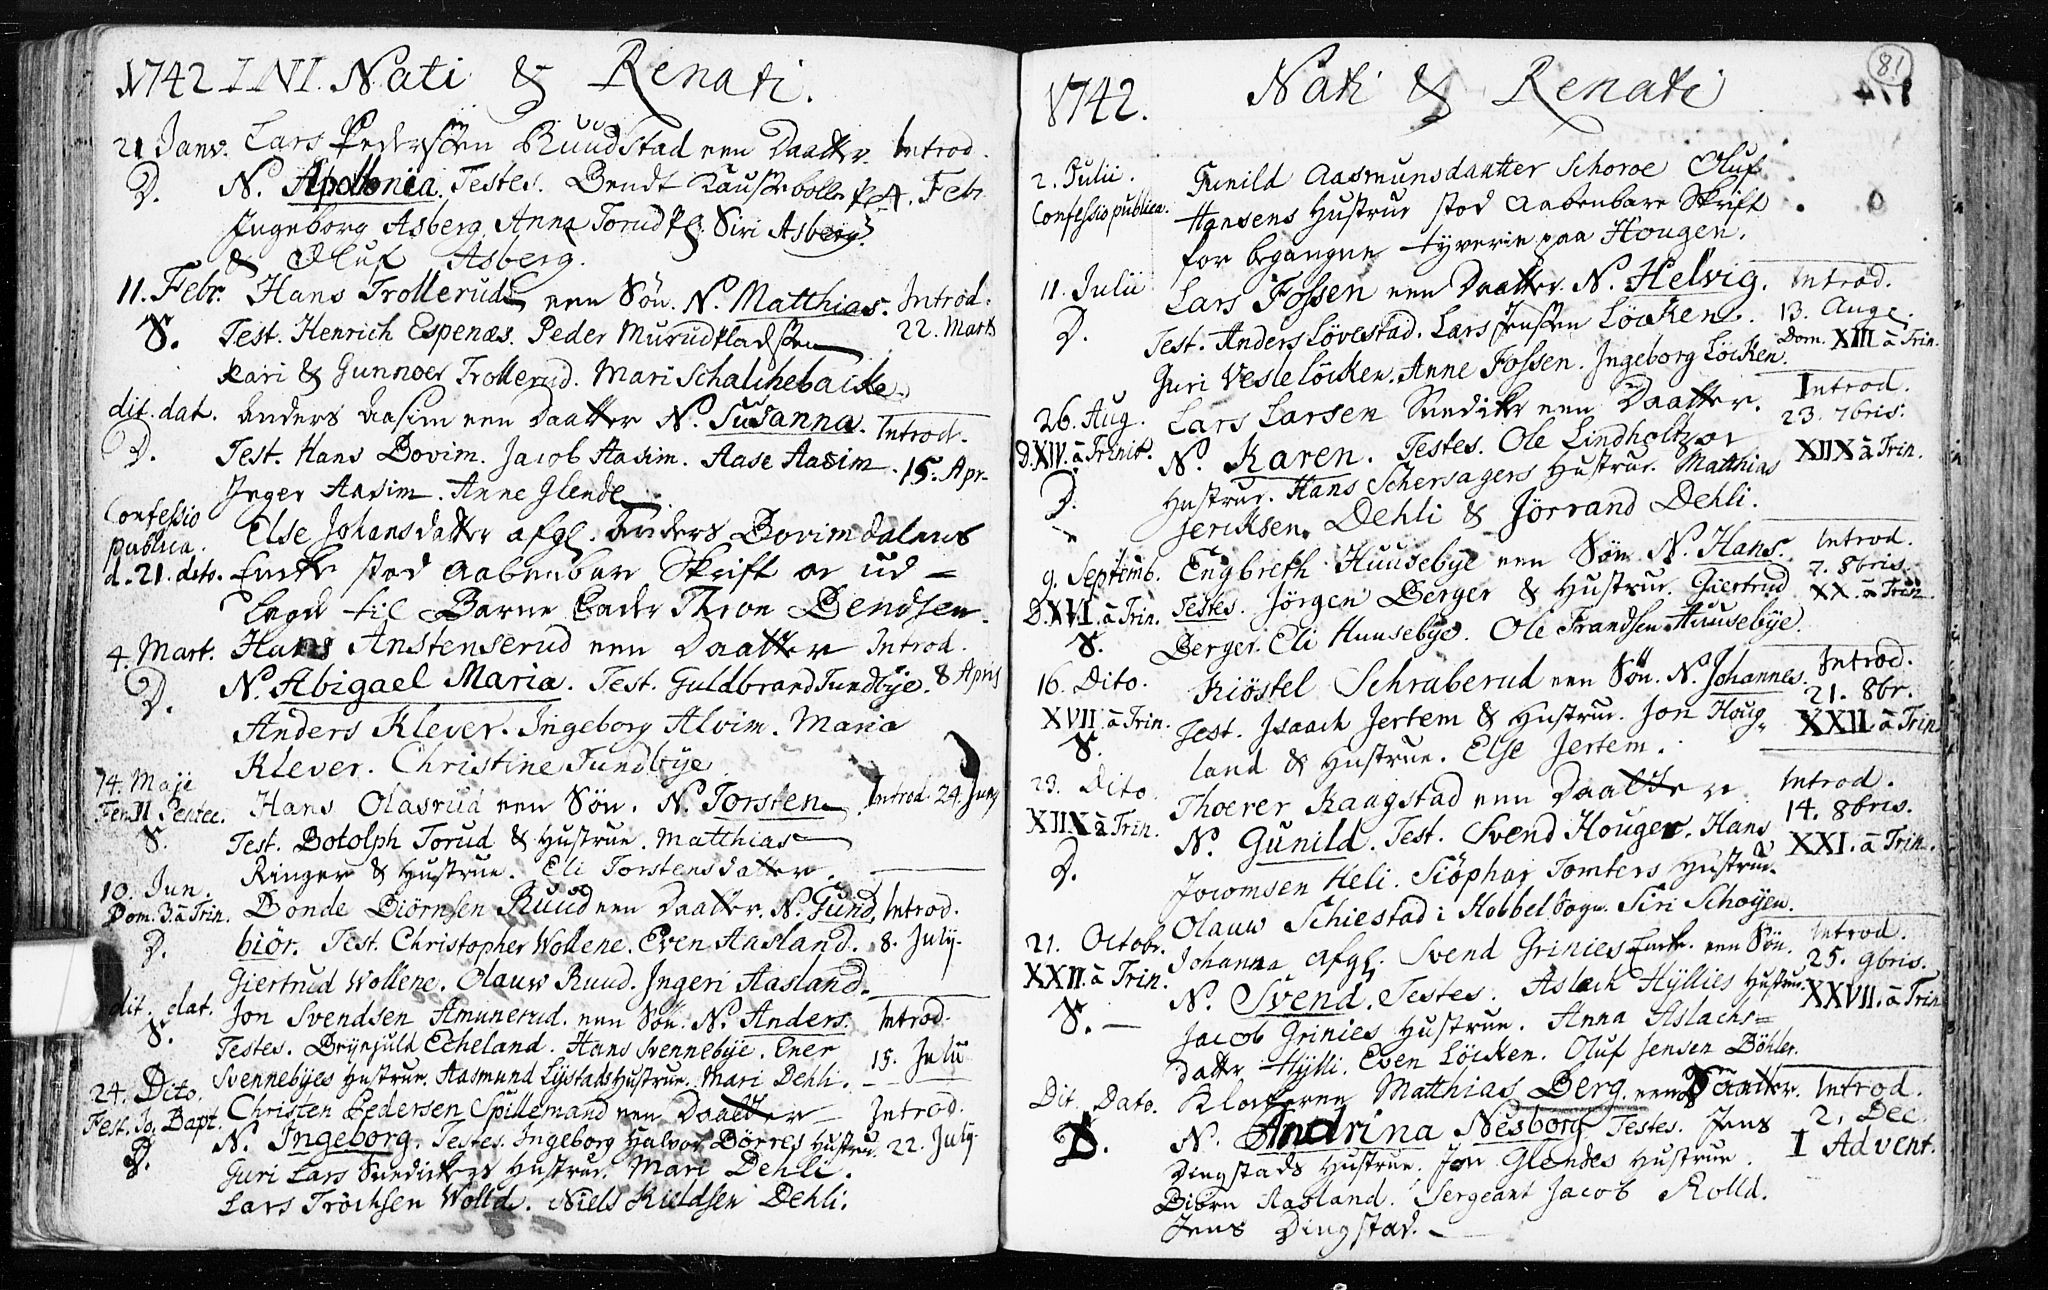 1742 INI. Nati & Renati.
21 Janv. Lars Pederssen Ruudstad een Daatter. Introd.
D. N. Apollonia. Testes. Bendt Kausebolle. Feb.
Ingeborg Asberg. Anna Torud Siri Asberg.
& Oluf Asberg.
11. Febr. Hans Trollerud een Søn. N. Matthias. Introd.
S. Test. Henrich Espenæs. Peder Murudpladssen 22. Marts
Kari & Gunnoer Trollerud. Mari Schalchebache.
dit. dat. Anders Aasim een Daatter N. Susanna. Introd.
D. Test. Hans Bovim. Jacob Aasim. Aase Aasim. 15. Apr.
Inger Aasim. Anne Glende.
Confessio Else Johansdatter afgl. Anders Bovimdalens
publica.
d. 21. dito. Encke stod aabenbare Skrift oc ud-
lagde til Barne Fader Thron Bendsen.
4. Mart. Hans Anstenserud een Daatter Introd.
D. N. Abigael Maria. Test. Guldbrand Sundbye. 8 April
Anders Klever. Ingeborg Alvim. Maria
Klever. Christine Sundbye
14. Maji Hans Olasrud een Søn. N. Torsten. Introd. 24. Juny
Fer. II Pentec.
S. Test. Botolph Torud & Hustrue. Matthias
Ringer & Hustrue. Eli Torstensdatter.
10. Jun.
Dom. 3 â Trin. Bonde Biørnsen Ruud een Daatter. N. Gund- Introd.
D. biør. Test. Christopher Wollene. Even Aasland. 8. July.
Giertrud Wollene. Olauw Ruud. Ingeri Aasland.
dit. dat. Jon Svendsen Amunerud. een Søn. N. Anders. Introd.
S. Testes. Brynjuld Echeland. Hans Svennebye. Ener 15. Julii
Svennebyes Hustrue. Aasmund Lystads Hustrue. Mari Dehli.
24. Dito. Christen Pedersen Spillemand een Daatter Introd.
Fest. Jo. Bapt.
D. N. Ingeborg. Testes. Ingeborg Halvor Børres Hustru. 22. July
Guri Lars Hustrue. Mari Dehli.
Lars Trøichsen Wolld. Niels Kieldsen Dehli.
81
1742. Nati & Renati
2. Julii. Gunild Aasmunsdaatter Schoroe Oluf
Confessio publica. Hansens Hustrue stod aabenbare Skrift
for begangne tyverie paa Hougen.
11. Julii Lars Fossen een Daatter N. Helvig. Introd.
D. Test. Anders Løvestad. Lars Jenssen Løcken. 13. Aug.
Dom. XIII â Trin.
Guri Vesleløcken. Anne Fossen. Ingeborg Løcken.
26. Aug. Lars Larsen een Daatter. Introd. 23. 7bris.
D. XIV. â Trinit. N. Karen. Testes. Ole Lindholt oc XIIX â Trin.
D. Hustrue. Hans Schersagers Hustrue. Matthias
Jericksen. Dehli & Jørrand Dehli.
9. Septemb. Engbreth Huusebye een Søn N. Hans. Introd. 7. 8bris.
D. XVI. â Trin. Testes. Jørgen Berger & Hustrue. Giertrud XX. â Trin
S. Berger. Eli Huusebye. Ole Frandsen Huusebye.
16. Dito. Kiøstel Schraberud een Søn. N. Johannes. Introd. 21. 8br.
XVII â Trin. Test. Isaach Jertem & Hustrue. Jon Houg- XXII â Trin.
S. land & Hustrue. Else Jertem.
23. Dito. Thoerer Kaagstad een Daatter Introd. 14. 8bris.
XIIX â Trin. N. Gunild. Test. Svend Houger. Hans XXI. â Trin.
D. Jocomsen Heli. Siøphar Tomters Hustrue.
Olauw Schiestad i Hobbel Sogn. Siri Schøyen.
21. Octobr. Johanna afgl. Svend Grinies Encke. een Søn. Introd. 25. 9bris.
XXII. â Trin. N. Svend. Testes. Aslach Hyllies Hustrue. XXVII. â Trin
S. Jacob Grinies Hustrue. Anna Aslachs-
datter Hylli. Even Løcken. Oluf Jensen Bøhler.
Dit. Dato. Klockeren Matthias Berg. een Daatter. Introd.
D. N. Andrina Nesborg Testes. Jens 2. Dec.
Dingstads Hustrue. Jon Glendes Hustrue. I Advent.
Biørn Aasland. Sergeant Jacob Rolld.
Jens Dingstad.